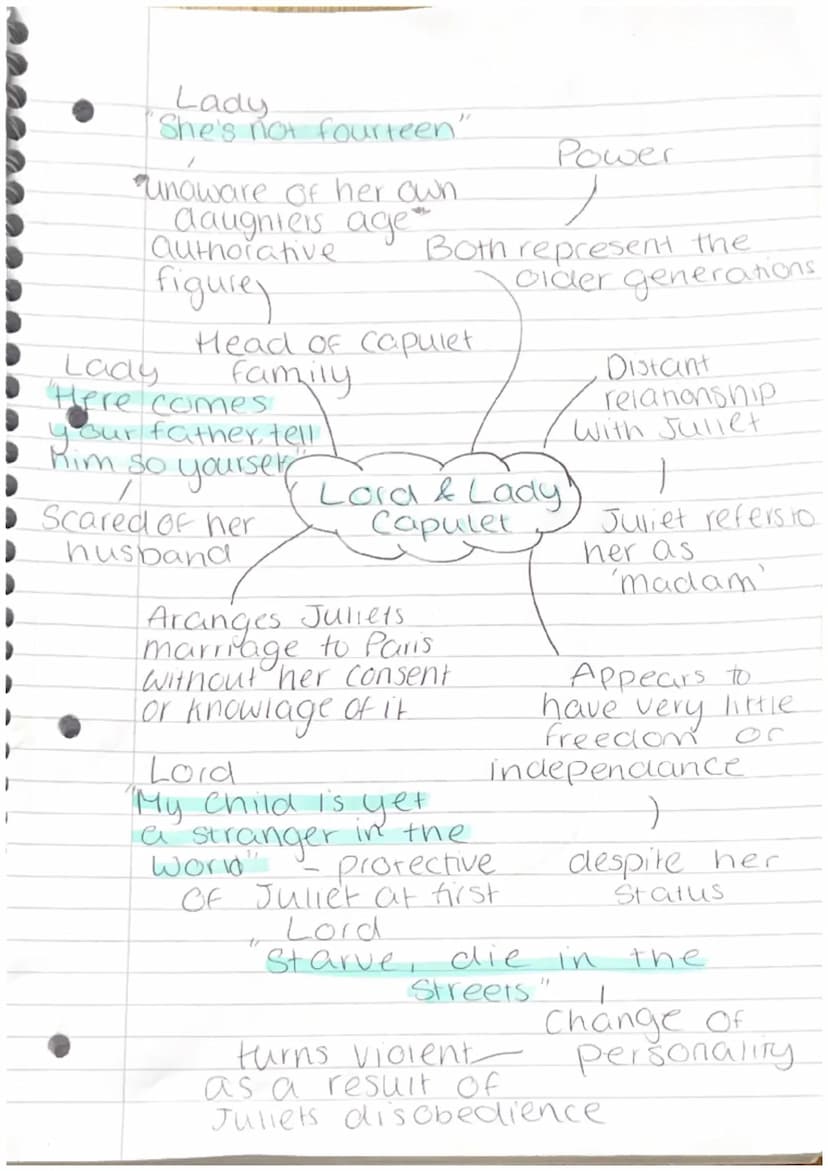 Lady
"She's not fourteen"
"unaware of her own
daughters age"
authorative
figure
Power
Both represent the
older generations
Head of Capulet
family
Lady
"Here comes
your father, tell
him so yourself"
Scared of her
husband
Distant
relationship
with Juliet
Juliet refers to
her as
'madam'
Lord & Lady
Capulet
Aranges Juliets
marriage to Paris
without her consent
or knowlage of it
Appears to
have very little
freedom or
independance
despite her
status
Lord
"My child is yet
a stranger in the
world" - protective
of Juliet at first
Lord
"Starve, die in the
streets"
Change of
personality
turns violent
as a result of
Juliets disobedience